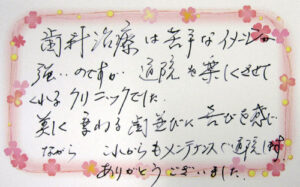 歯科治療は苦手なイメージが
強いのですが 通院を楽しくさせて
くれるクリニックでした
美しく変わる歯並びに喜びを感じ
ながら これからもメンテナンスで通院します
ありがとうございました。